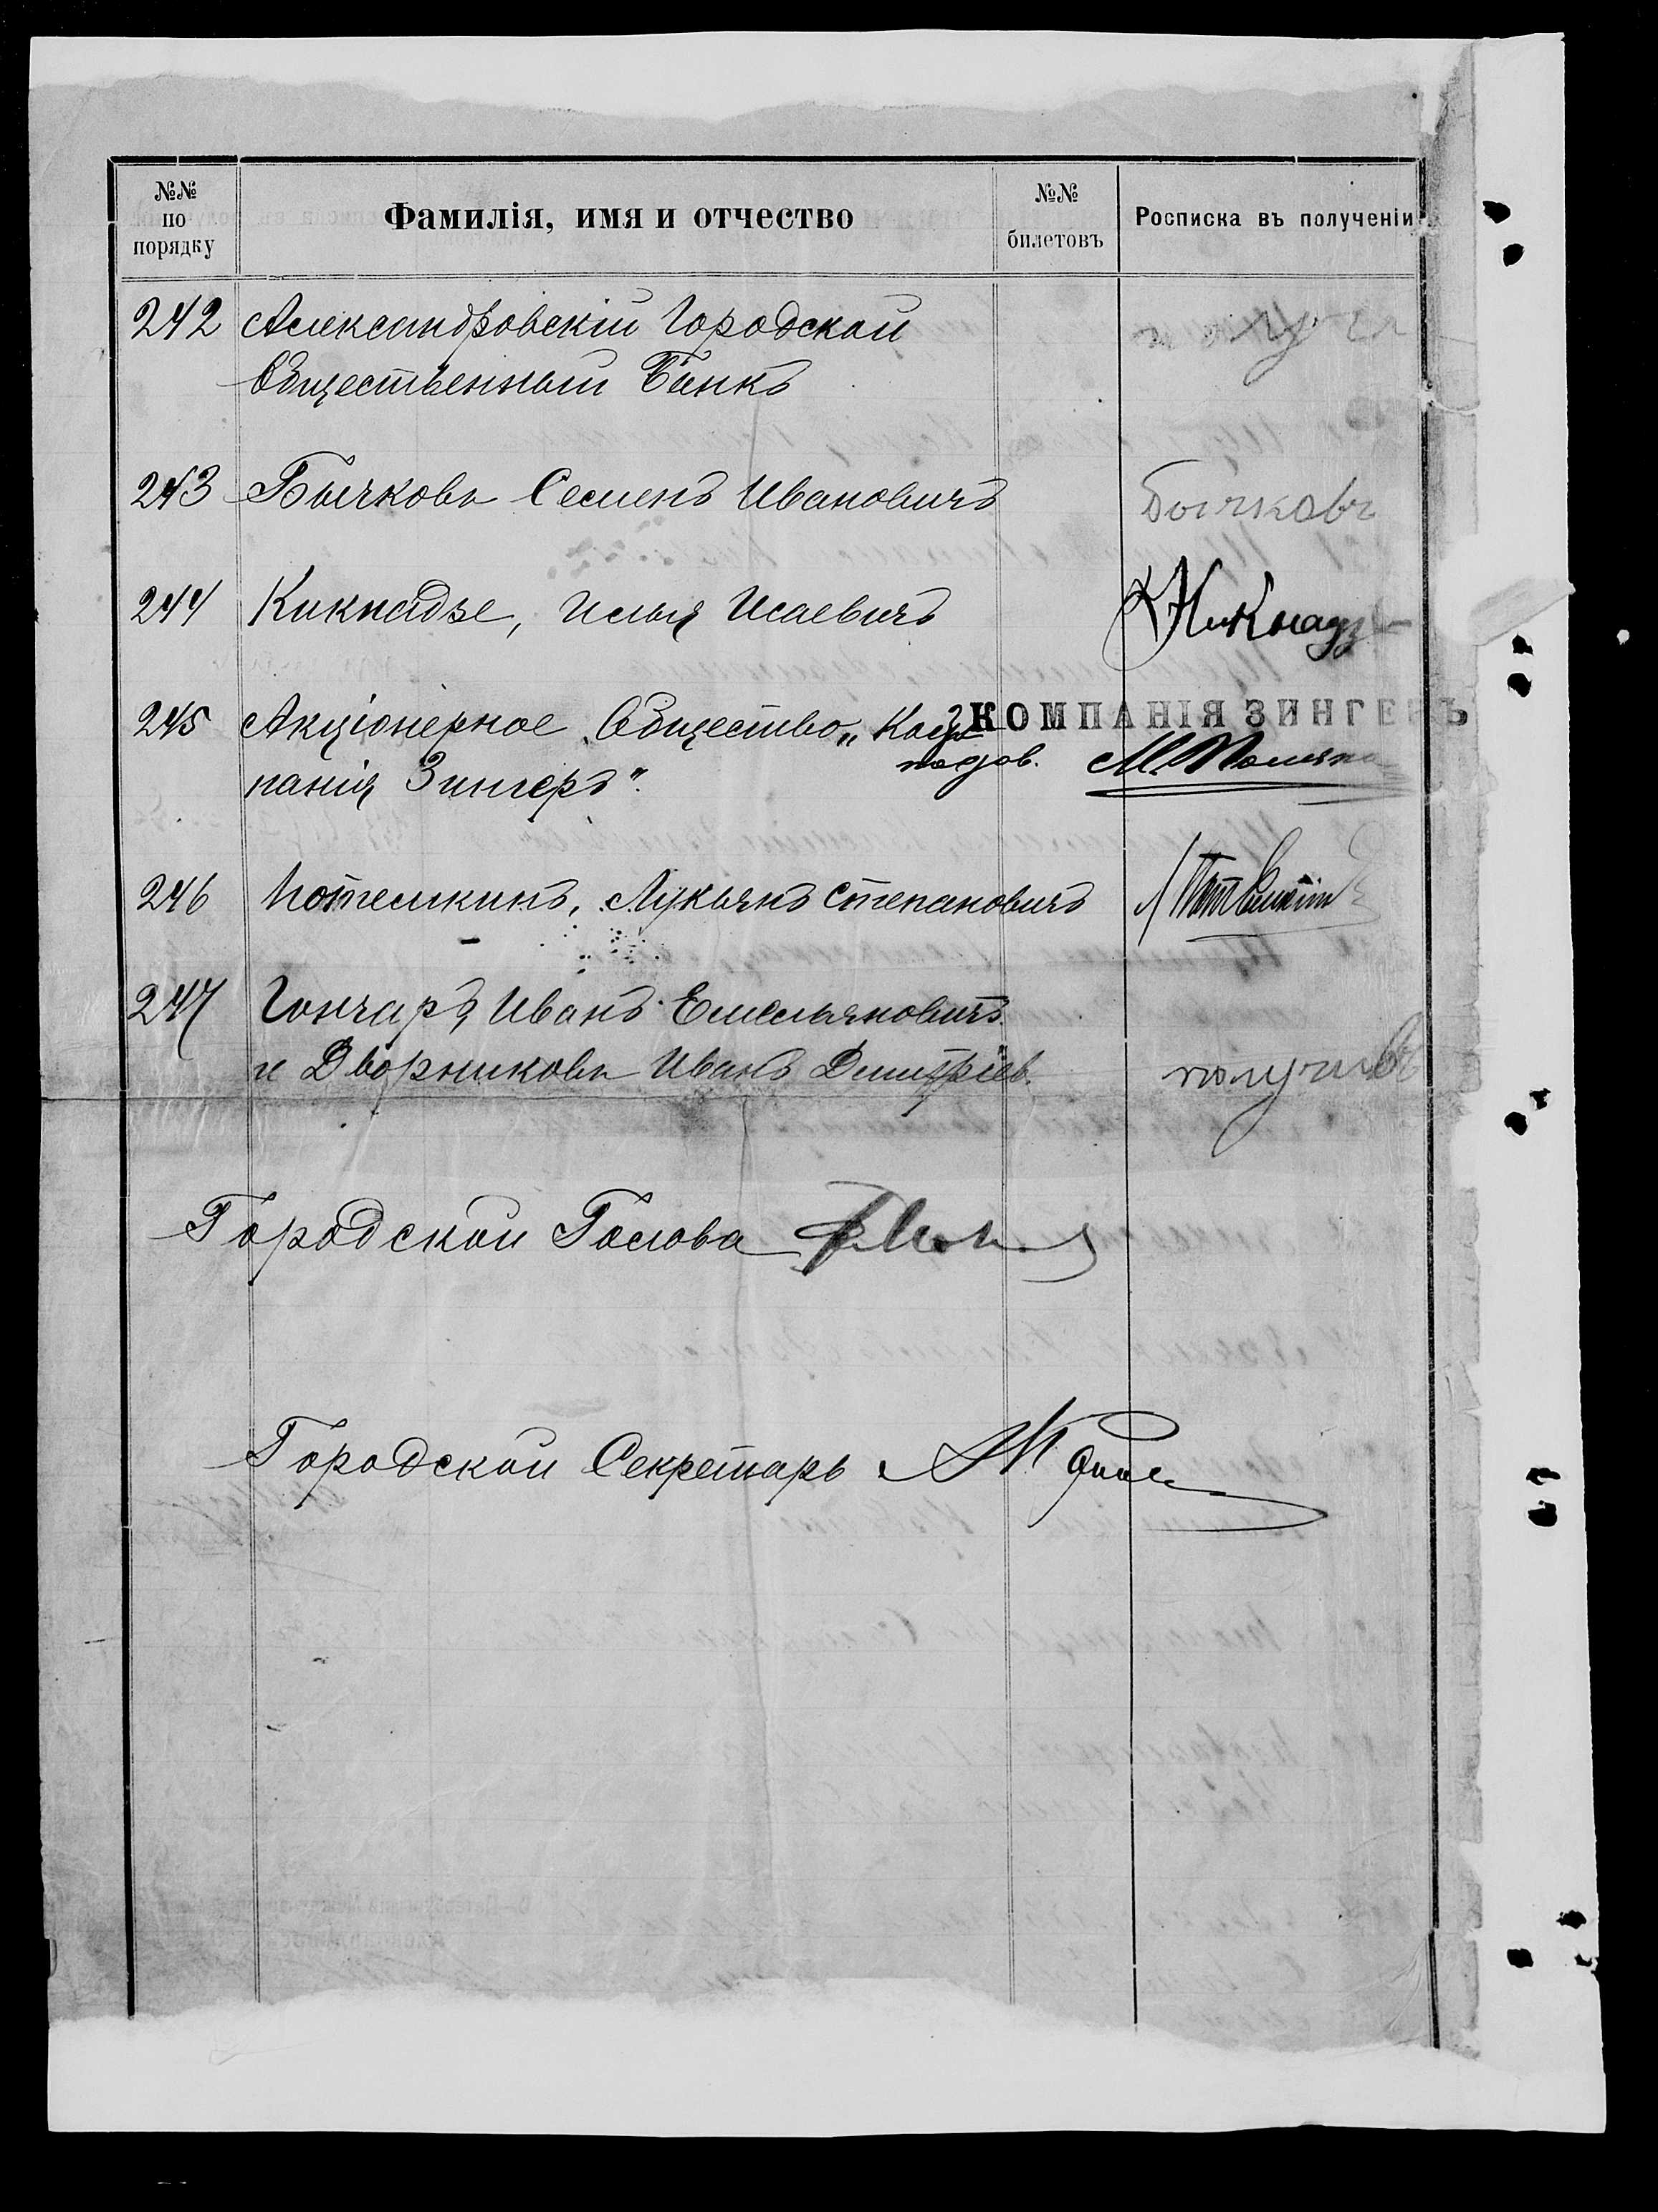 №№
по
порядку
Фамилія, имя и отчество
№№
билетовъ
Росписка въ полученіи
242 Александровскій Городской
Общественный Банкъ
243 Бычковъ Семенъ Ивановичъ Бычковъ
244 Кикнадзе, Илья Исаевичъ Кикнадзе
245 Акціонерное Общество „Ком- КОМПАНІЯ ЗИНГЕРЪ
панія Зингеръ".
246 Потемкинъ, Лукьянъ Степановичъ
247 Гончаръ, Иванъ Емельяновичъ
и Дворниковъ Иванъ Дмитріев. получилъ
Городской Голова
Городской Секретарь